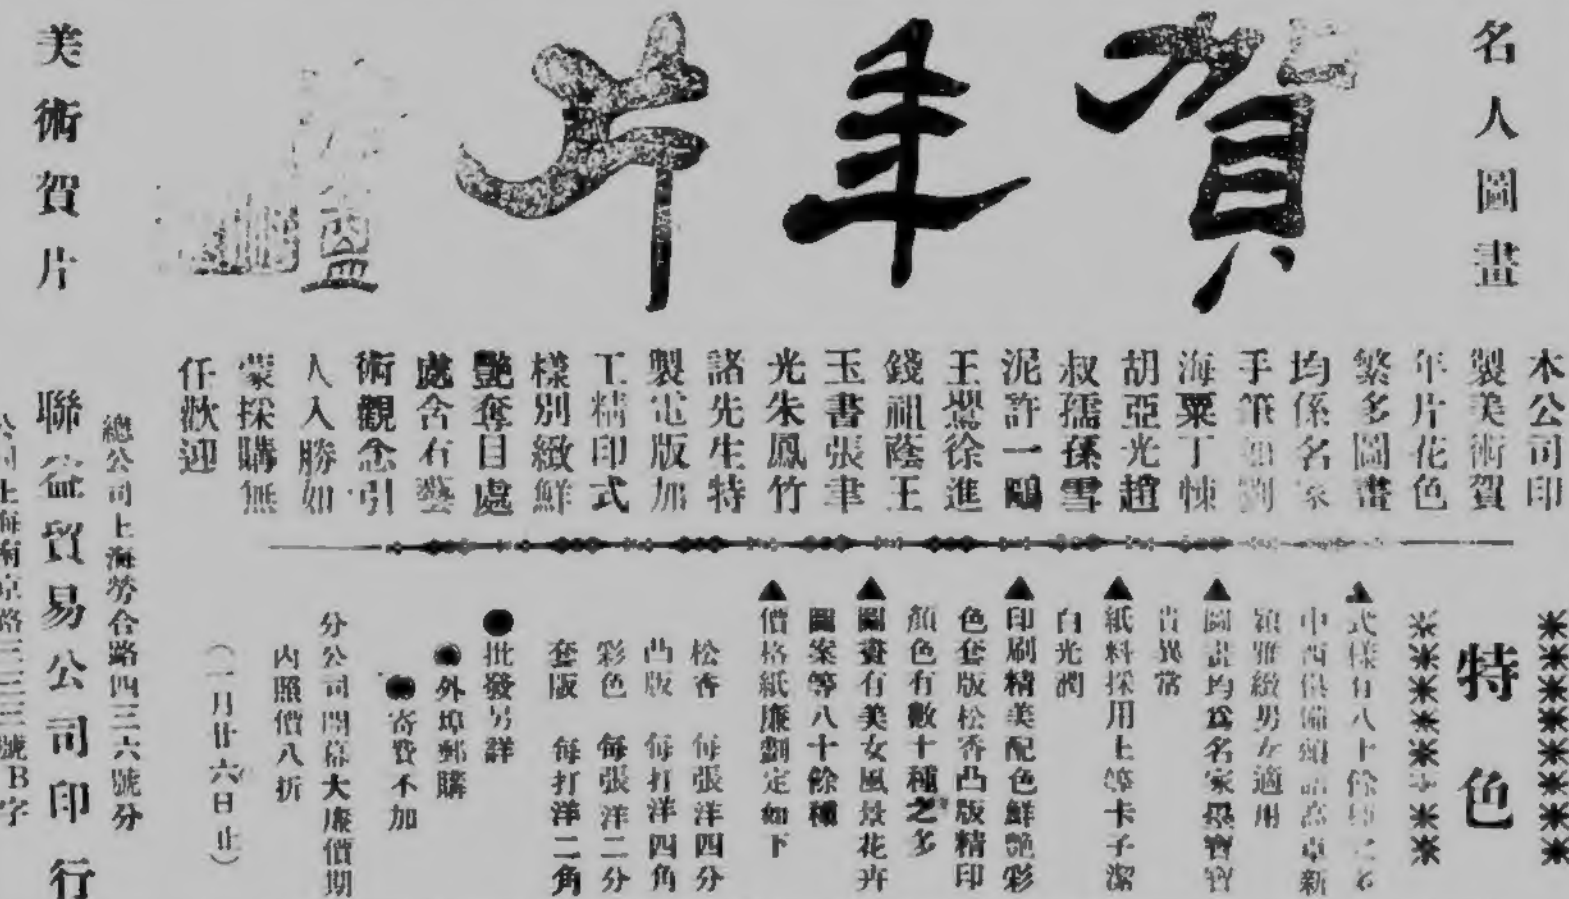 名人圖畫
賀年片
美術賀片
本公司印
製美術賀
年片花色
繁多圖畫
均係名家
手筆如劉
海粟丁悚
胡亞光趙
叔孺孫雪
泥許一鷗
王鸎徐進
錢祖蔭王
玉書張聿
光朱鳳竹
諸先生特
製電版加
工精印式
樣別緻鮮
艷奪目處
處含有藝
術觀念引
人入勝如
蒙採購無
仟歡迎
特色
▲式樣有八十餘種之多
中西俱備頌語高卓新
穎雅緻男女適用
▲圖畫均為名家墨寶寶
貴異常
▲紙料採用上等卡子潔
白光潤
▲印刷精美配色鮮艷彩
色套版松香凸版精印
顏色有數十種之多
▲圖畫有美女風景花卉
圖案等八十餘種
▲價格紙廉劃定如下
松香 每張洋四分
凸版 每打洋四角
彩色 每張洋二分
套版 每打洋二角
●批發另詳
●外埠郵購
●寄費不加
分公司開幕大廉價期
內照價八折
(一月廿六日止)
總公司上海勞合路四三六號分
聯益貿易公司印行
公司上海南京路三三三號B字